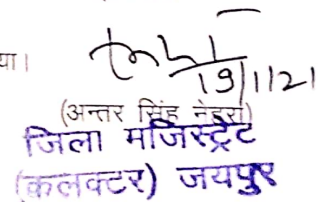 या।
19/1/21
(अन्तर सिंह नेहरा)
जिला मजिस्ट्रेट
(कलक्टर) जयपुर